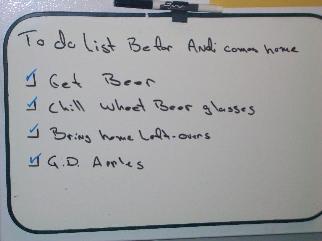 To do list Befor Andi comes home
Get Beer
Chill Wheat Beer glasses
Bring home Left-overs
G.D. Apples